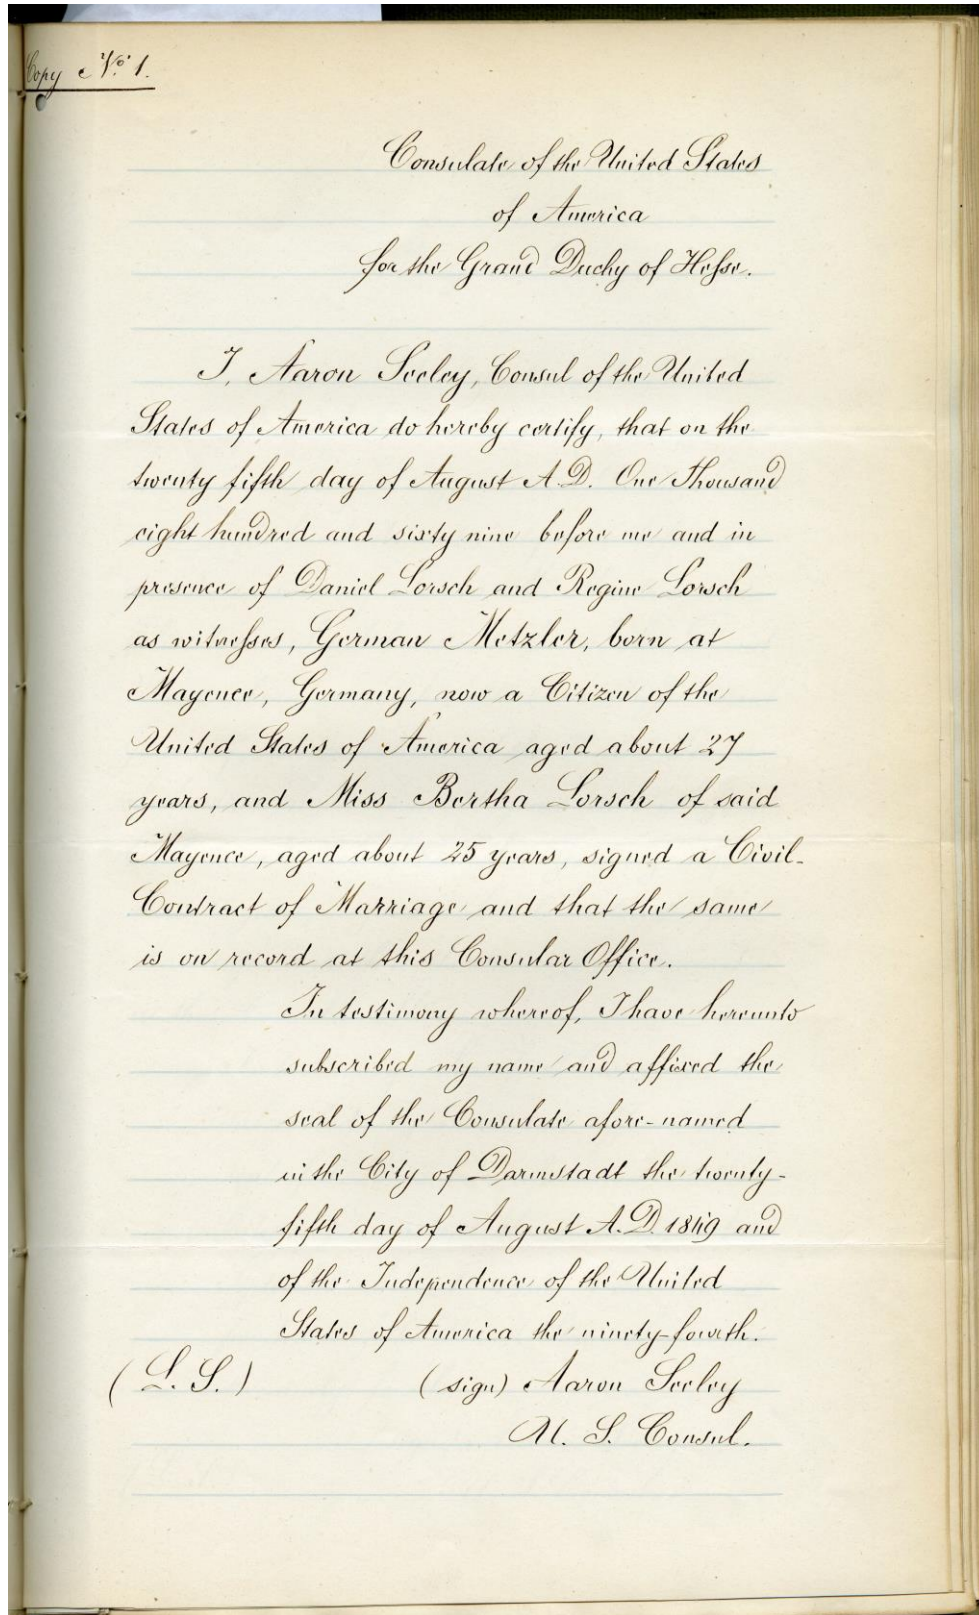 Copy No. 1.
Consulate of the United States
of America
for the Grand Duchy of Hesse.
I, Aaron Seeley, Consul of the United
States of America do hereby certify, that on the
twenty fifth day of August A.D. One Thousand
eight hundred and sixty nine before me and in
presence of Daniel Lorsch and Regine Lorsch
as witnesses, German Metzler, born at
Mayence, Germany, now a Citizen of the
United States of America aged about 27
years, and Miss Bertha Lorsch of said
Mayence, aged about 25 years, signed a Civil-
Contract of Marriage and that the same
is on record at this Consular Office.
In testimony whereof, I have hereunto
subscribed my name and affixed the
seal of the Consulate afore-named
in the City of Darmstadt the twenty-
fifth day of August A.D. 1869 and
of the Independence of the United
States of America the ninety-fourth.
(L. S.) (sign) Aaron Seeley
U. S. Consul.